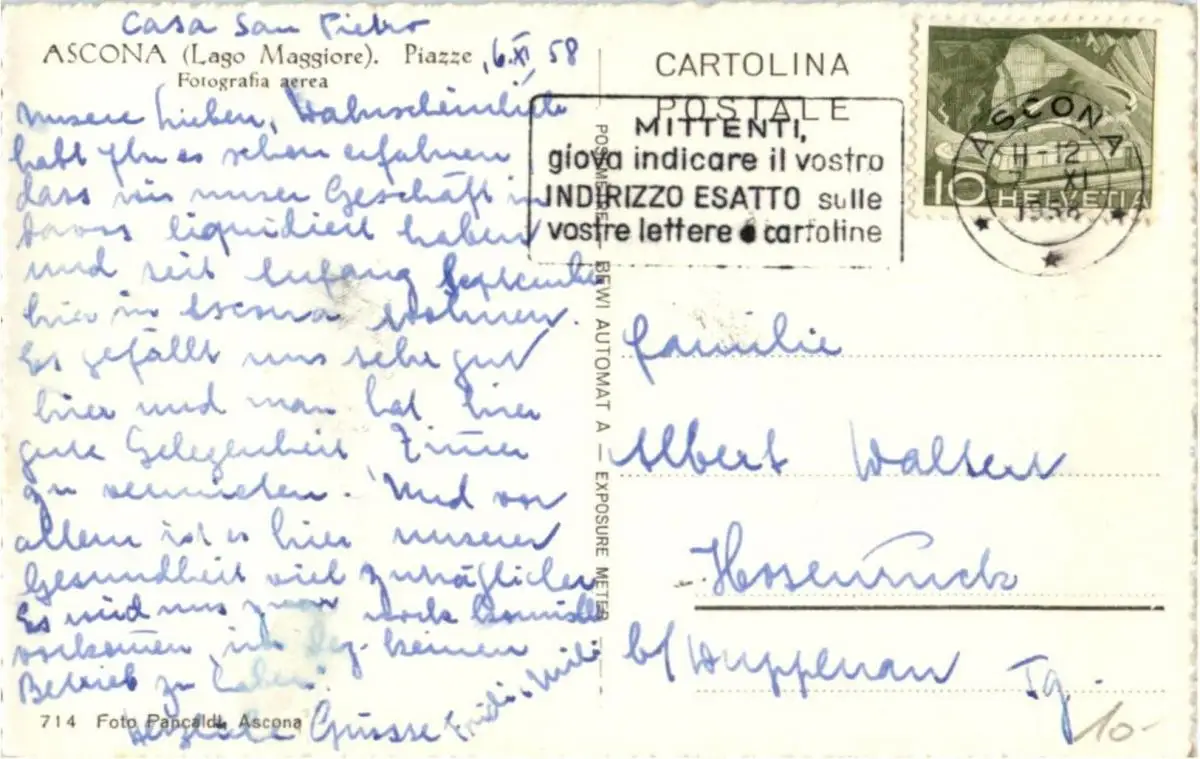 Casa San Pietro
ASCONA (Lago Maggiore). Piazze, 6.XI.58
Fotografia aerea
Unsere Lieben, Wahrscheinlich
habt Ihr es schon erfahren
dass wir unser Geschäft in
Davos liquidiert haben
und seit Anfang September
hier in Ascona wohnen.
Es gefällt uns sehr gut
hier und man hat hier
gute Gelegenheit Zimer
zu vermieten. Und vor
allem ist es hier unserer
Gesundheit viel zuträglicher
Es wird uns zwar noch komisch
vorkomen im Dez. keinen
Betrieb zu haben.
Herzliche Grüsse
714 Foto Pancaldi, Ascona
BEWI AUTOMAT A — EXPOSURE METER
CARTOLINA
POSTALE
MITTENTI,
giova indicare il vostro
INDIRIZZO ESATTO sulle
vostre lettere e cartoline
10 HELVETIA
ASCONA
11-12
XI
1958
Familie
Albert Walser
Hosenruck
b/ Wuppenau Tg.
10-